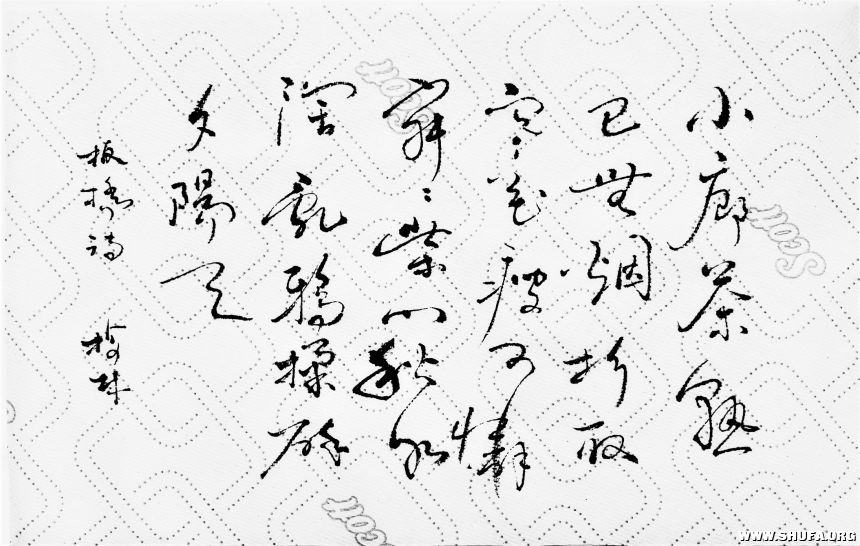 小廊茶熟
已無烟折取
寒花瘦可憐
寂々柴门秋水
闊亂鴉揉碎
夕陽天
板橋詩
Scott
Scott
Scott
WWW.SHUFA.ORG